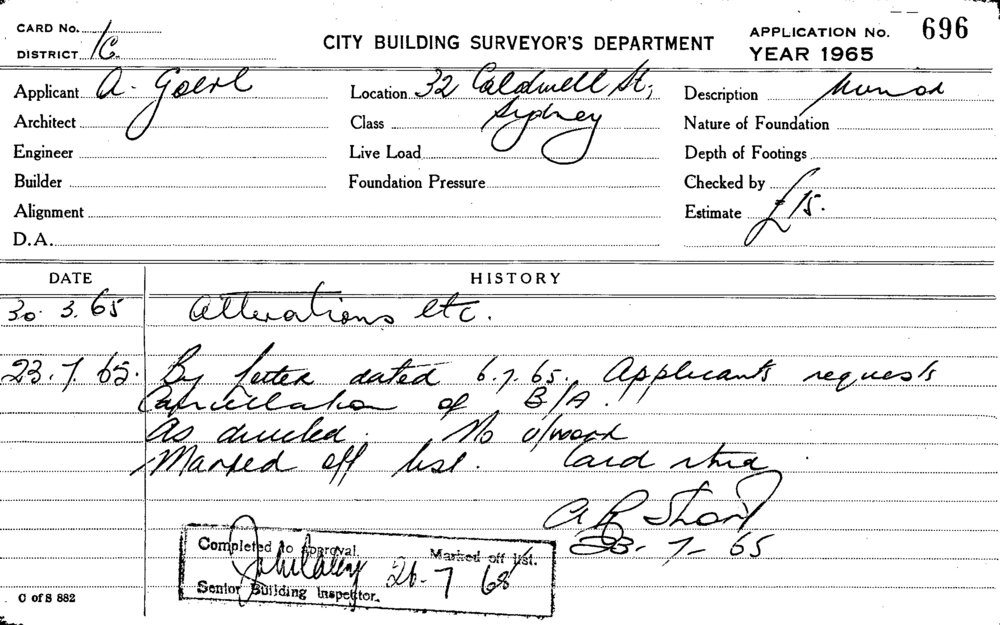 CARD No.
DISTRICT 1C.
CITY BUILDING SURVEYOR'S DEPARTMENT
APPLICATION No. 696
YEAR 1965
Applicant A. Goerl
Location 32 Caldwell St,
Sydney
Description
Architect
Class
Nature of Foundation
Engineer
Live Load
Depth of Footings
Builder
Foundation Pressure
Checked by
Alignment
Estimate £15.
D.A.
DATE HISTORY
30. 3. 65 Alterations etc.
23. 7. 65. By letter dated 6.7.65. Applicants requests
Cancellation of B/A.
As directed. No
Marked off list. Card
A R Short
23-7-65
Completed to Approval. Marked off list.
26-7
Senior Building Inspector.
C of S 882